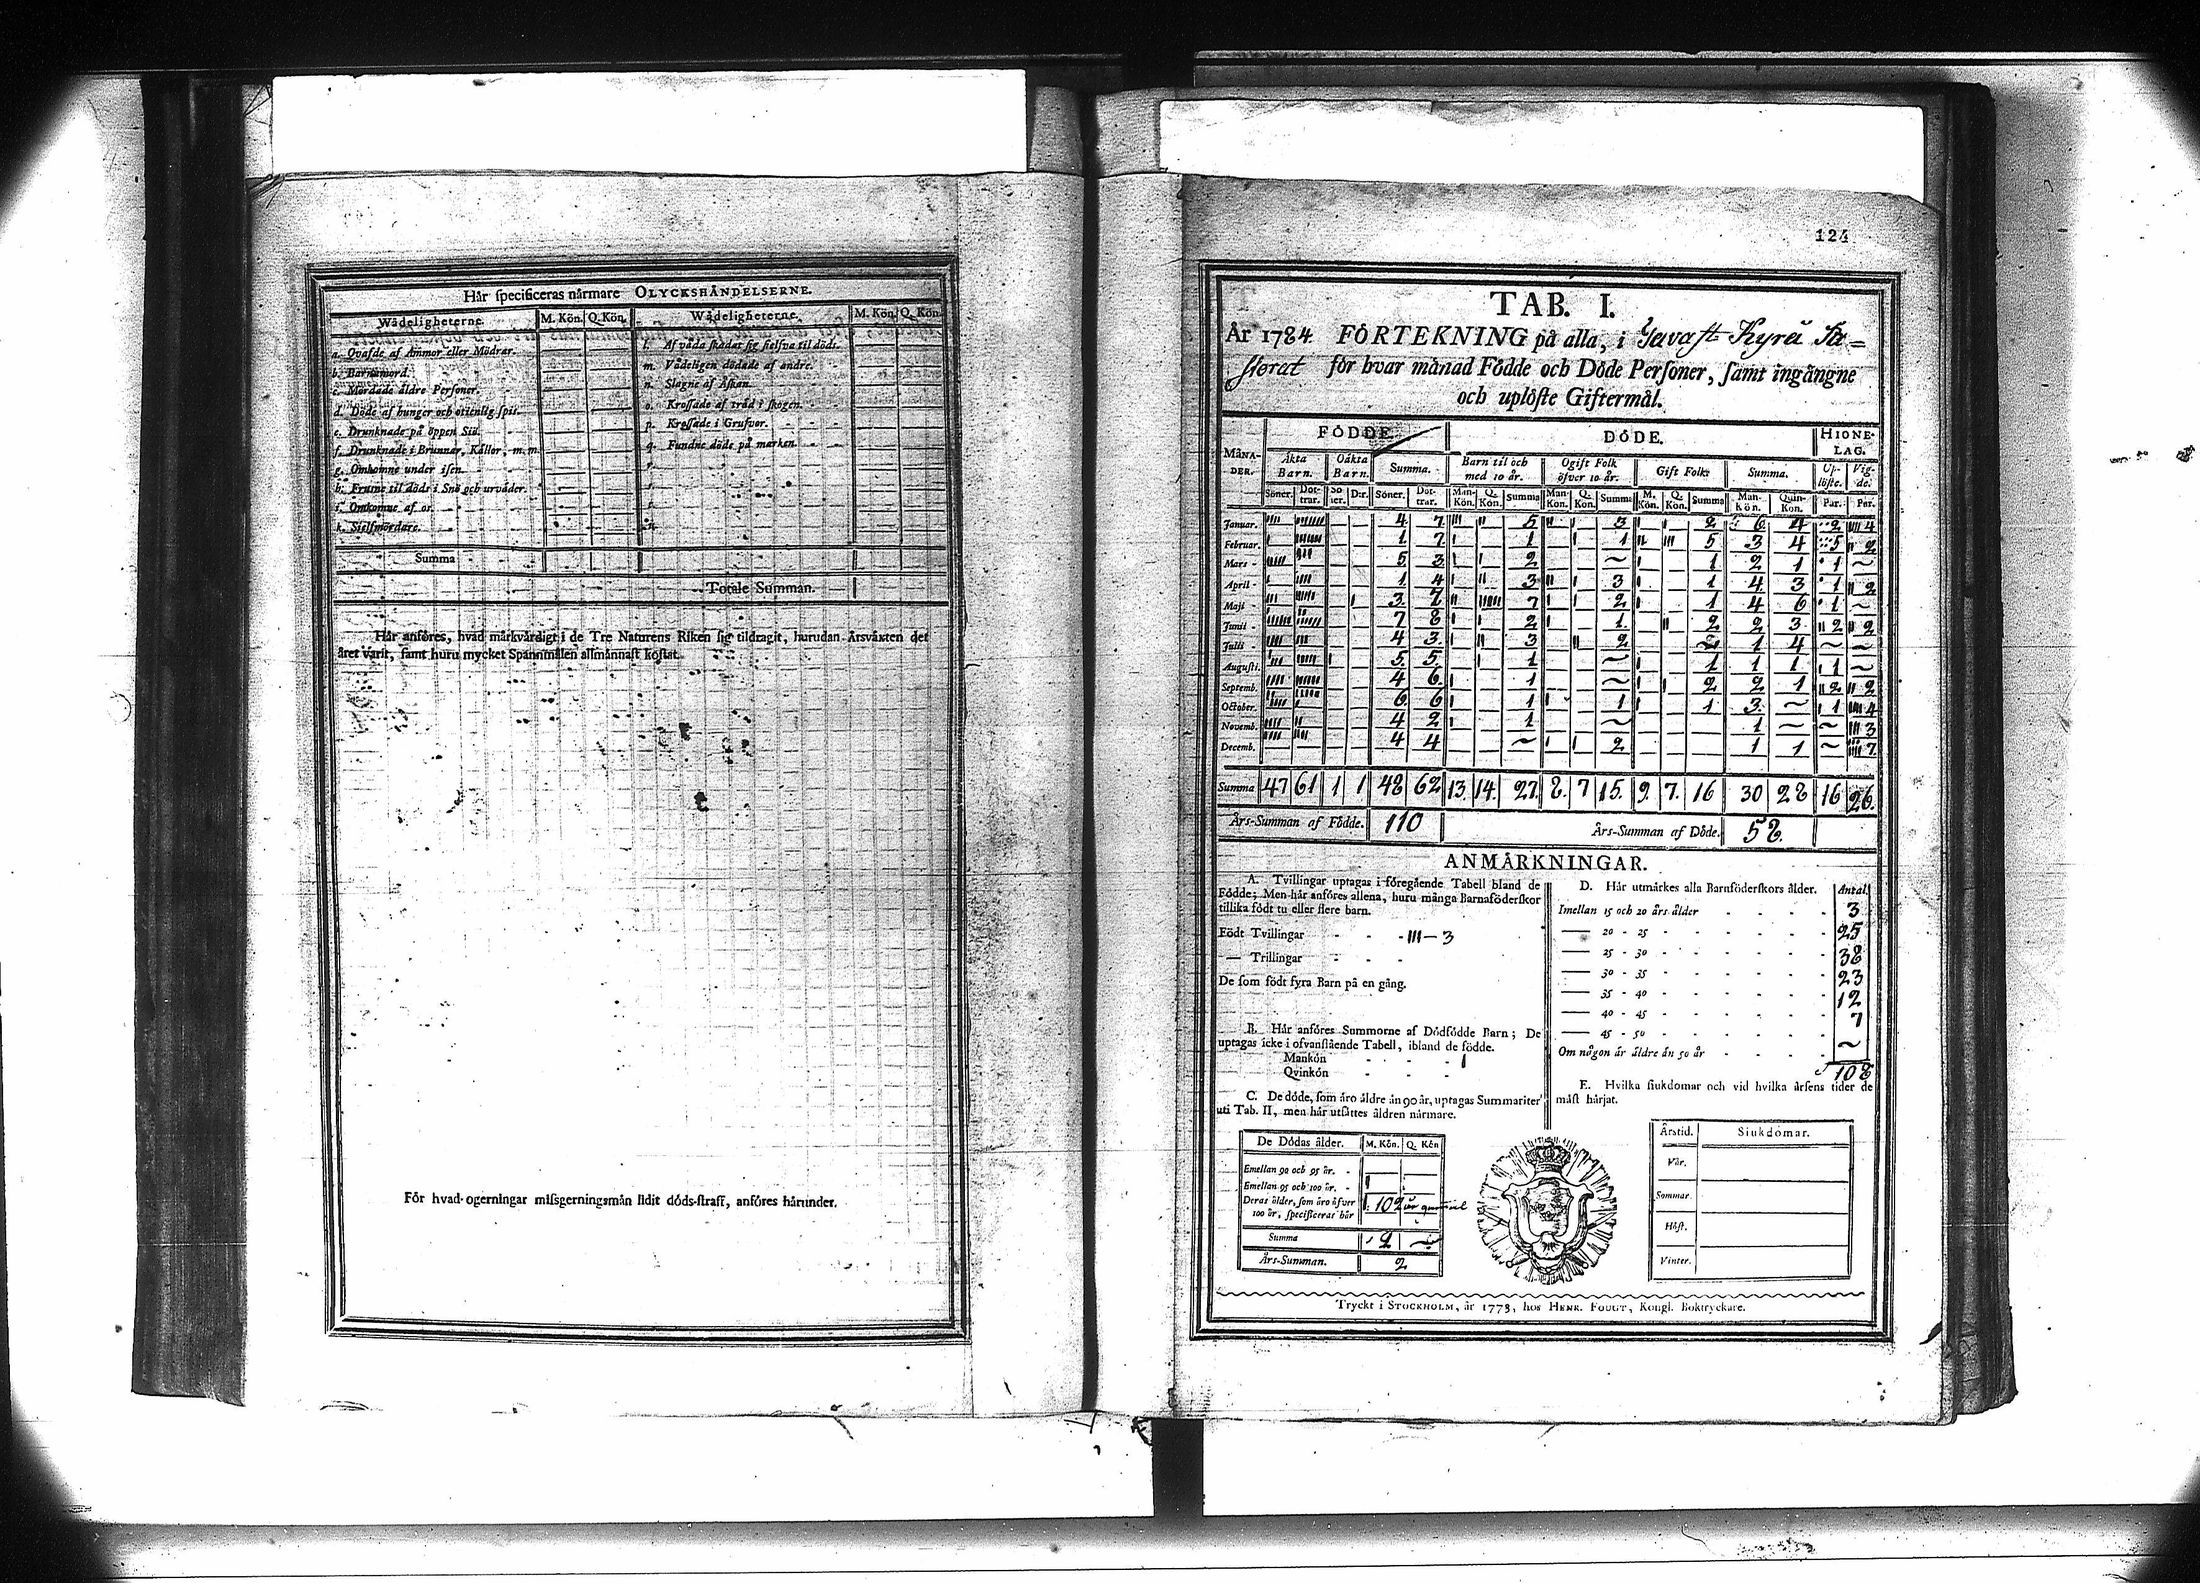 Här specificeras närmare OLYCKSHÄNDELSERNE.
Wådeligheterne. M. Kön. Q. Kön. Wådeligheterne. M. Kön. Q. Kön.
a. Qvafde af Ammor eller Mödrar. l. Af våda skadat sig sielfva til döds.
b. Barnamord. m. Vådeligen dödade af andre.
c. Mördade äldre Personer. n. Slagne af Åskan.
d. Döde af hunger och otienlig spis. o. Krossade af träd i skogen.
e. Drunknade på öppen Siö. p. Krossade i Grufvor.
f. Drunknade i Brunnar, Källor, m. m. q. Fundne döde på marken.
g. Omkomne under isen. r.
h. Frusne til döds i Snö och urväder. s.
i. Omkomne af os. t.
k. Sielfmördare. u.
Summa
Totale Summan.
Här anföres, hvad märkvärdigt i de Tre Naturens Riken sig tildragit, hurudan Årsväxten det
året varit, samt huru mycket Spannmålen allmännast kostat.
För hvad ogerningar missgerningsmän lidit döds-straff, anföres härunder.
124
TAB. I.
År 1784 FÖRTEKNING på alla, i Tavast Kyrö Pa=
storat för hvar månad Födde och Döde Personer, samt ingångne
och uplöste Giftermål.
MÅNADER. FÖDDE. DÖDE. HIONELAG.
Äkta Barn. Oäkta Barn. Summa. Barn til och med 10 år. Ogift Folk öfver 10 år. Gift Folk. Summa. Uplöste. Vigde.
Söner. Dottrar. Söner. D:r. Söner. Dottrar. Man-Kön. Q. Kön. Summa Man-Kön. Q. Kön. Summa M. Kön. Q. Kön. Summa Man-Kön. Quin-Kön. Par. Par.
Januar. 4. 7 5 3 2 6 4 2 4
Februar. 1. 7. 1 1 5 3 4 5 2
Mars 5 3 2 ~ 1 2 1 1 ~
April 1 4 3 3 1 4 3 1 2
Maji 3. 7 7 2 1 4 6 1 ~
Junii 7 8 2 1. 2 2 3 2 2
Julii 4 3 3 2 ~ 1 4 ~ ~
Augusti. 5. 5 1 ~ 1 1 1 1 ~
Septemb. 4 6 1 ~ 2 2 1 2 2
October. 6 6 1 1 1 3 ~ 1 4
Novemb. 4 2 1 ~ 1 ~ ~ 3
Decemb. 4 4 ~ 2 1 1 ~ 7
Summa 47 61 1 1 48 62 13. 14. 27. 8. 7 15. 9. 7. 16 30 28 16 26.
Års-Summan af Födde. 110 Års-Summan af Döde. 58.
ANMÄRKNINGAR.
A. Tvillingar uptagas i föregående Tabell bland de
Födde; Men här anföres allena, huru många Barnaföderskor
tillika födt tu eller flere barn.
Födt Tvillingar - - - III — 3
— Trillingar - - -
De som födt fyra Barn på en gång.
B. Här anföres Summorne af Dödfödde Barn; De
uptagas icke i ofvanstående Tabell, ibland de födde.
Mankön - - - 1
Qvinkön - - -
C. De döde, som äro äldre än 90 år, uptagas Summariter
uti Tab. II, men här utsättes åldren närmare.
De Dödas ålder. M. Kön. Q. Kön
Emellan 90 och 95 år. -
Emellan 95 och 100 år. - 1
Deras ålder, som äro öfver
100 år, specificeras här 1. 102 år
Summa 2 ~
Års-Summan. 2
D. Här utmärkes alla Barnföderskors ålder. Antal.
Imellan 15 och 20 års ålder 3
— 20 - 25 25
— 25 - 30 38
— 30 - 35 23
— 35 - 40 12
— 40 - 45 7
— 45 - 50 ~
Om någon är äldre än 50 år
108
E. Hvilka siukdomar och vid hvilka årsens tider de
mäst härjat.
Årstid. Siukdomar.
Vår.
Sommar.
Höst.
Vinter.
Tryckt i STOCKHOLM, år 1773, hos HENR. FOUGT, Kongl. Boktryckare.